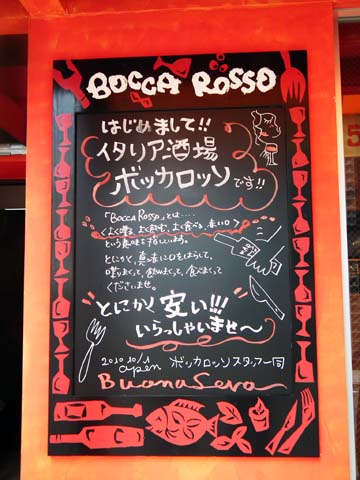 BOCCA ROSSO
はじめまして!!
イタリア酒場
ボッカロッソです!!
「BOCCA ROSSO」とは‥‥
よく喋る、よく飲む、よく食べる、赤い口
という意味を指しています。
とにかく、真っ赤に口をはらして、
喋りまくって、飲みまくって、食べまくって
くださいませ。
とにかく 安い!!!
いらっしゃいませ〜
2010 10/1 open
ボッカロッソスタッフ一同
Buona Sera